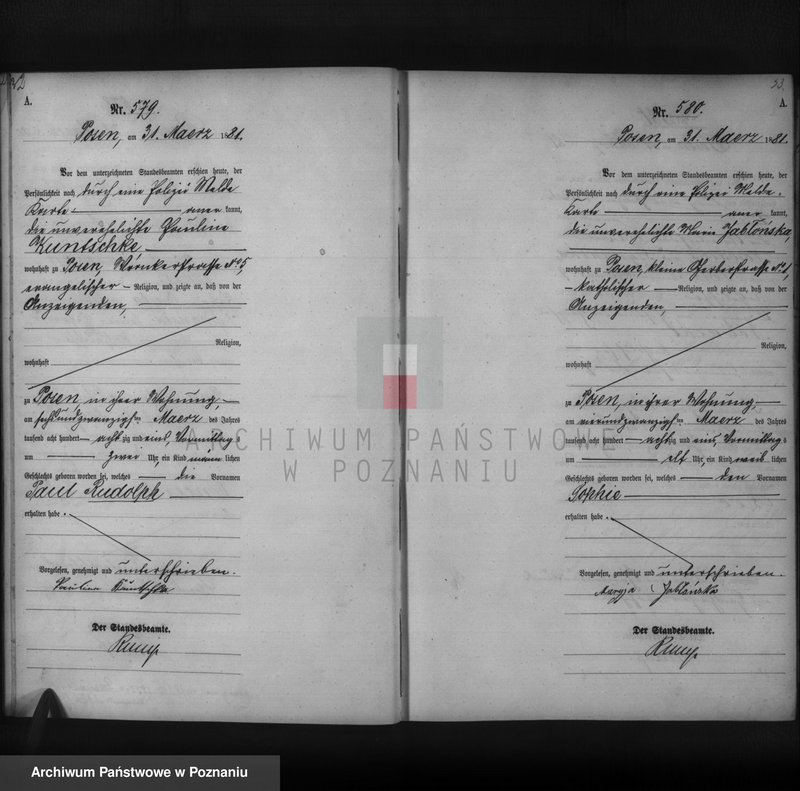 A.
Nr. 579.
Posen, am 31. Maerz 1881.
Vor dem unterzeichneten Standesbeamten erschien heute, der
Persönlichkeit nach durch eine Polizei Melde
Karte aner kannt,
die unverehelichte Pauline
Kuntschke
wohnhaft zu Posen, No 5,
evangelischer Religion, und zeigte an, daß von der
Anzeigenden,
Religion,
wohnhaft
zu Posen, in ihrer Wohnung,
am sechsundzwanzigsten Maerz des Jahres
tausend acht hundert achtzig und eins, Vormittags
um zwei Uhr, ein Kind männlichen
Geschlechts geboren worden sei, welches die Vornamen
Paul Rudolph
erhalten habe.
Vorgelesen, genehmigt und unterschrieben.
Pauline Kuntschke
Der Standesbeamte.
Nr. 580. A.
Posen, am 31 Maerz 1881.
Vor dem unterzeichneten Standesbeamten erschien heute, der
Persönlichkeit nach durch eine Polizei Melde.
Karte aner kannt,
die unverehelichte Marie Jabłońska,
wohnhaft zu Posen, kleine Gerberstrasse No 1,
katholischer Religion, und zeigte an, daß von der
Anzeigenden,
Religion,
wohnhaft
zu Posen, in ihrer Wohnung
am vierundzwanzigsten Maerz des Jahres
tausend acht hundert achtzig und eins, Vormittags
um elf Uhr, ein Kind weiblichen
Geschlechts geboren worden sei, welches den Vornamen
Sophie
erhalten habe.
Vorgelesen, genehmigt und unterschrieben.
Maryja Jabłońska
Der Standesbeamte.
ARCHIWUM PAŃSTWOWE
W POZNANIU
Archiwum Państwowe w Poznaniu